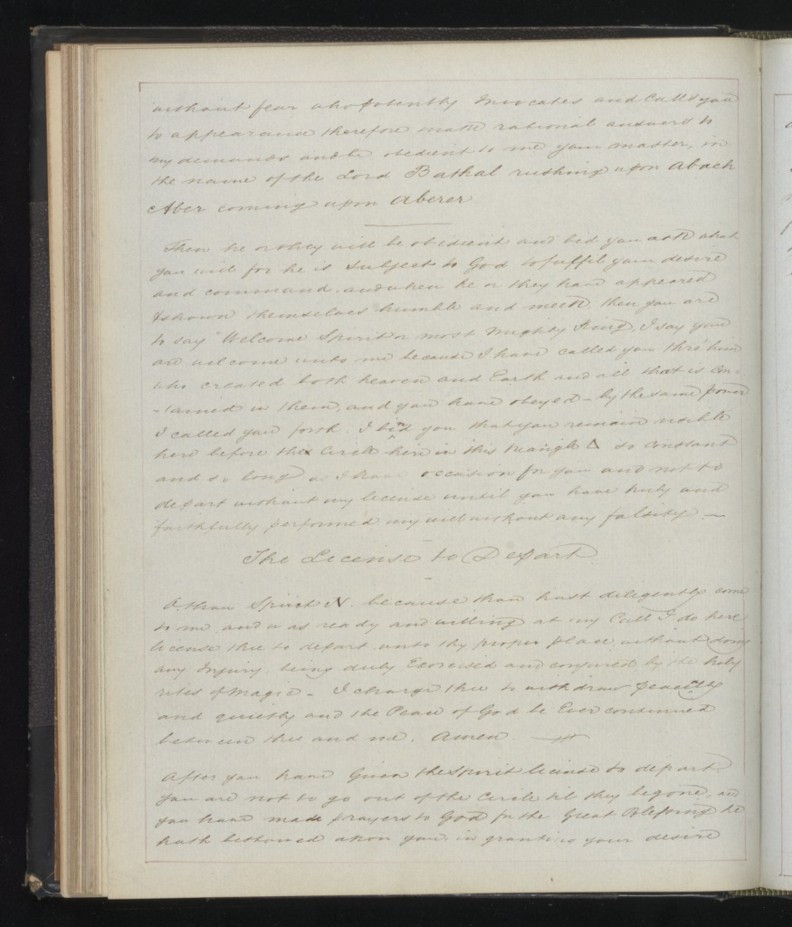 without fear who potently Invocates and Calls you
to appear and therefore make rational answers to
my demands and be obedient to me your master, in
the name of the Lord Bathal rushing upon Abach
Aber coming upon Aberer
Then he or they will be obedient and bid you ask what
you will for he is Subject to God to fulfil your desire
and command. and when he or they have appeared
& shown themselves humble and meek then you are
to say "Welcome Spirit or most mighty King, I say you
are welcome unto me because I have called you thro' him
who created both heaven and Earth and all that is con-
-tained in them, and you have obeyed - by the same power
I called you forth. I bind you that you remain visible
here before the Circle here in this triangle Δ so constant
and so long as I have occasion for you and not to
depart without my license until you have truly and
faithfully performed my will without any falsity —
The License to Depart
O thou Spirit N. because thou hast diligently come
to me and was ready and willing at my Call I do here
license thee to depart unto thy proper place without doing
any Injury being duly Exorcised and conjured by the holy
rites of magic - I charge thee to withdraw peaceably
and quietly and the Peace of God be Ever continued
between thee and me. Amen
After you have Given the Spirit license to depart
you are not to go out of the Circle til they be gone, and
you have made prayers to God for the Great Blessing he
hath bestowed upon you in granting your desire